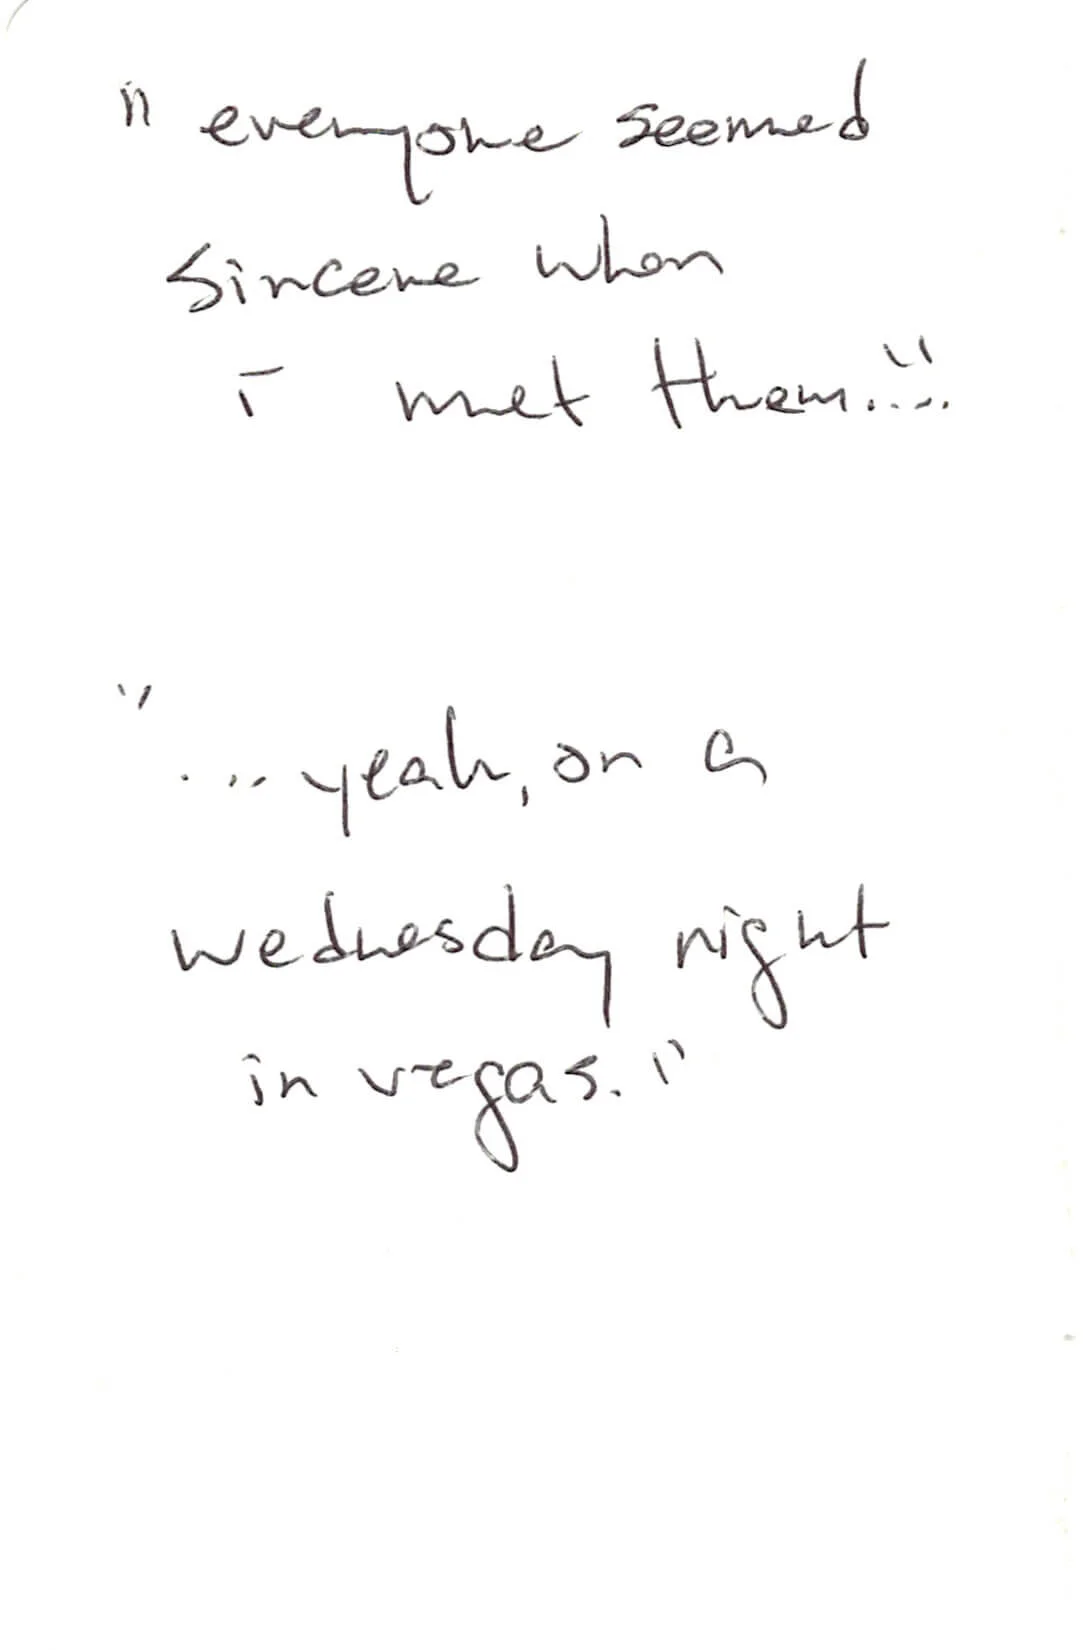 "everyone seemed
sincere when
I met them...."
"...yeah, on a
wednesday night
in vegas."